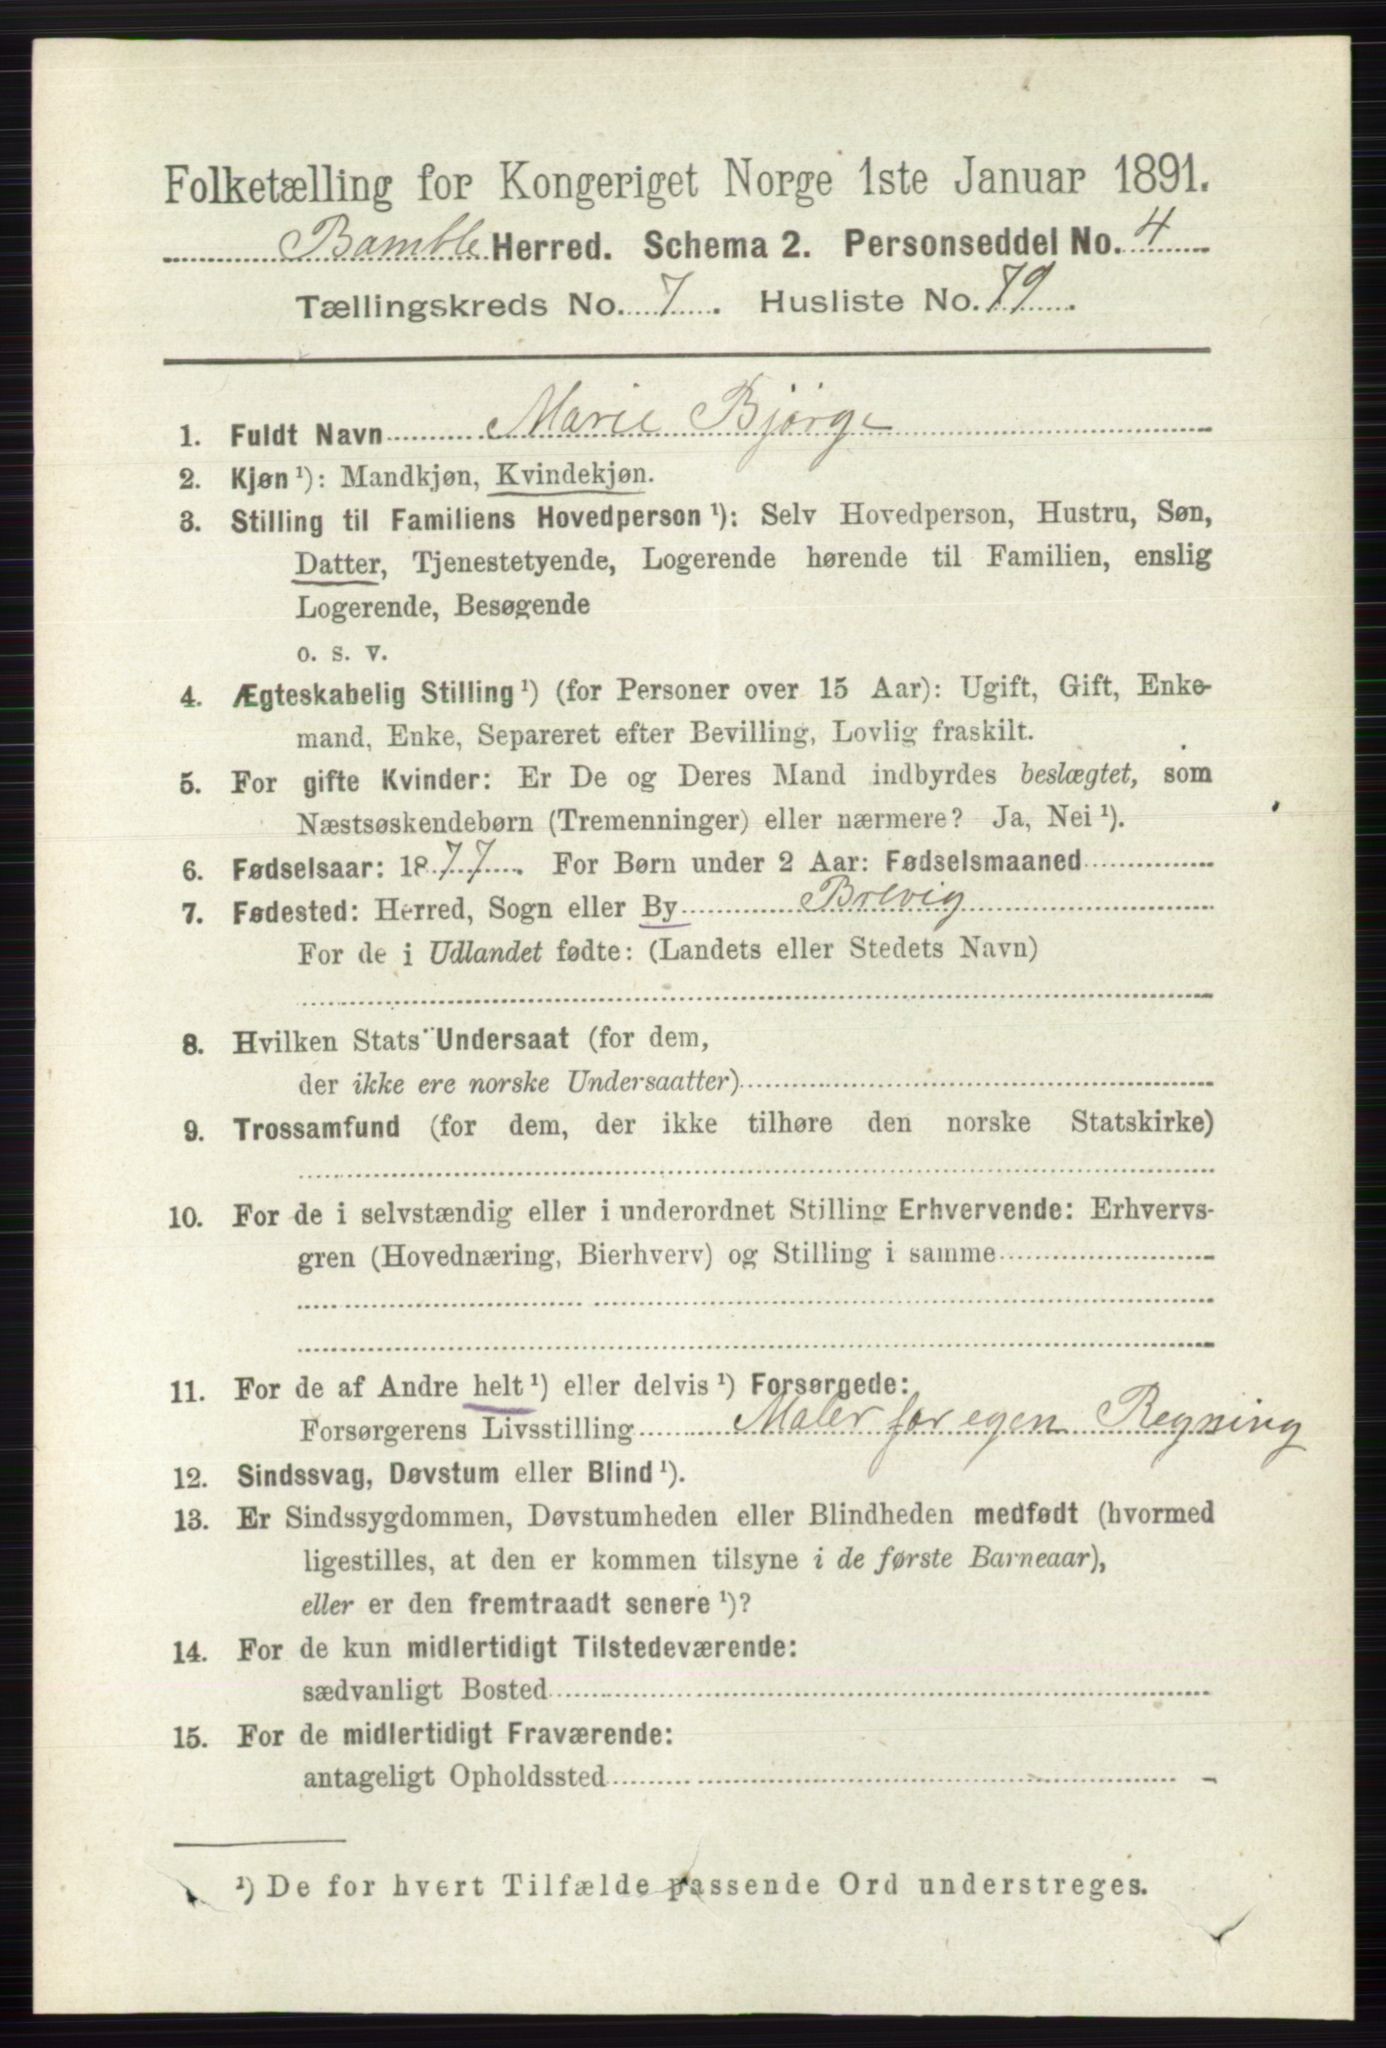 Folketælling for Kongeriget Norge 1ste Januar 1891.
Bamble Herred. Schema 2. Personseddel No. 4
Tællingskreds No. 7. Husliste No. 79.
1. Fuldt Navn Marie Bjørge
2. Kjøn ¹): Mandkjøn, Kvindekjøn.
3. Stilling til Familiens Hovedperson ¹): Selv Hovedperson, Hustru, Søn,
Datter, Tjenestetyende, Logerende hørende til Familien, enslig
Logerende, Besøgende
o. s. v.
4. Ægteskabelig Stilling ¹) (for Personer over 15 Aar): Ugift, Gift, Enke-
mand, Enke, Separeret efter Bevilling, Lovlig fraskilt.
5. For gifte Kvinder: Er De og Deres Mand indbyrdes beslægtet, som
Næstsøskendebørn (Tremenninger) eller nærmere? Ja, Nei ¹).
6. Fødselsaar: 1877. For Børn under 2 Aar: Fødselsmaaned
7. Fødested: Herred, Sogn eller By Brevig
For de i Udlandet fødte: (Landets eller Stedets Navn)
8. Hvilken Stats Undersaat (for dem,
der ikke ere norske Undersaatter)
9. Trossamfund (for dem, der ikke tilhøre den norske Statskirke)
10. For de i selvstændig eller i underordnet Stilling Erhvervende: Erhvervs-
gren (Hovednæring, Bierhverv) og Stilling i samme
11. For de af Andre helt ¹) eller delvis ¹) Forsørgede:
Forsørgerens Livsstilling Maler for egen Regning
12. Sindssvag, Døvstum eller Blind ¹).
13. Er Sindssygdommen, Døvstumheden eller Blindheden medfødt (hvormed
ligestilles, at den er kommen tilsyne i de første Barneaar),
eller er den fremtraadt senere ¹)?
14. For de kun midlertidigt Tilstedeværende:
sædvanligt Bosted
15. For de midlertidigt Fraværende:
antageligt Opholdssted
¹) De for hvert Tilfælde passende Ord understreges.